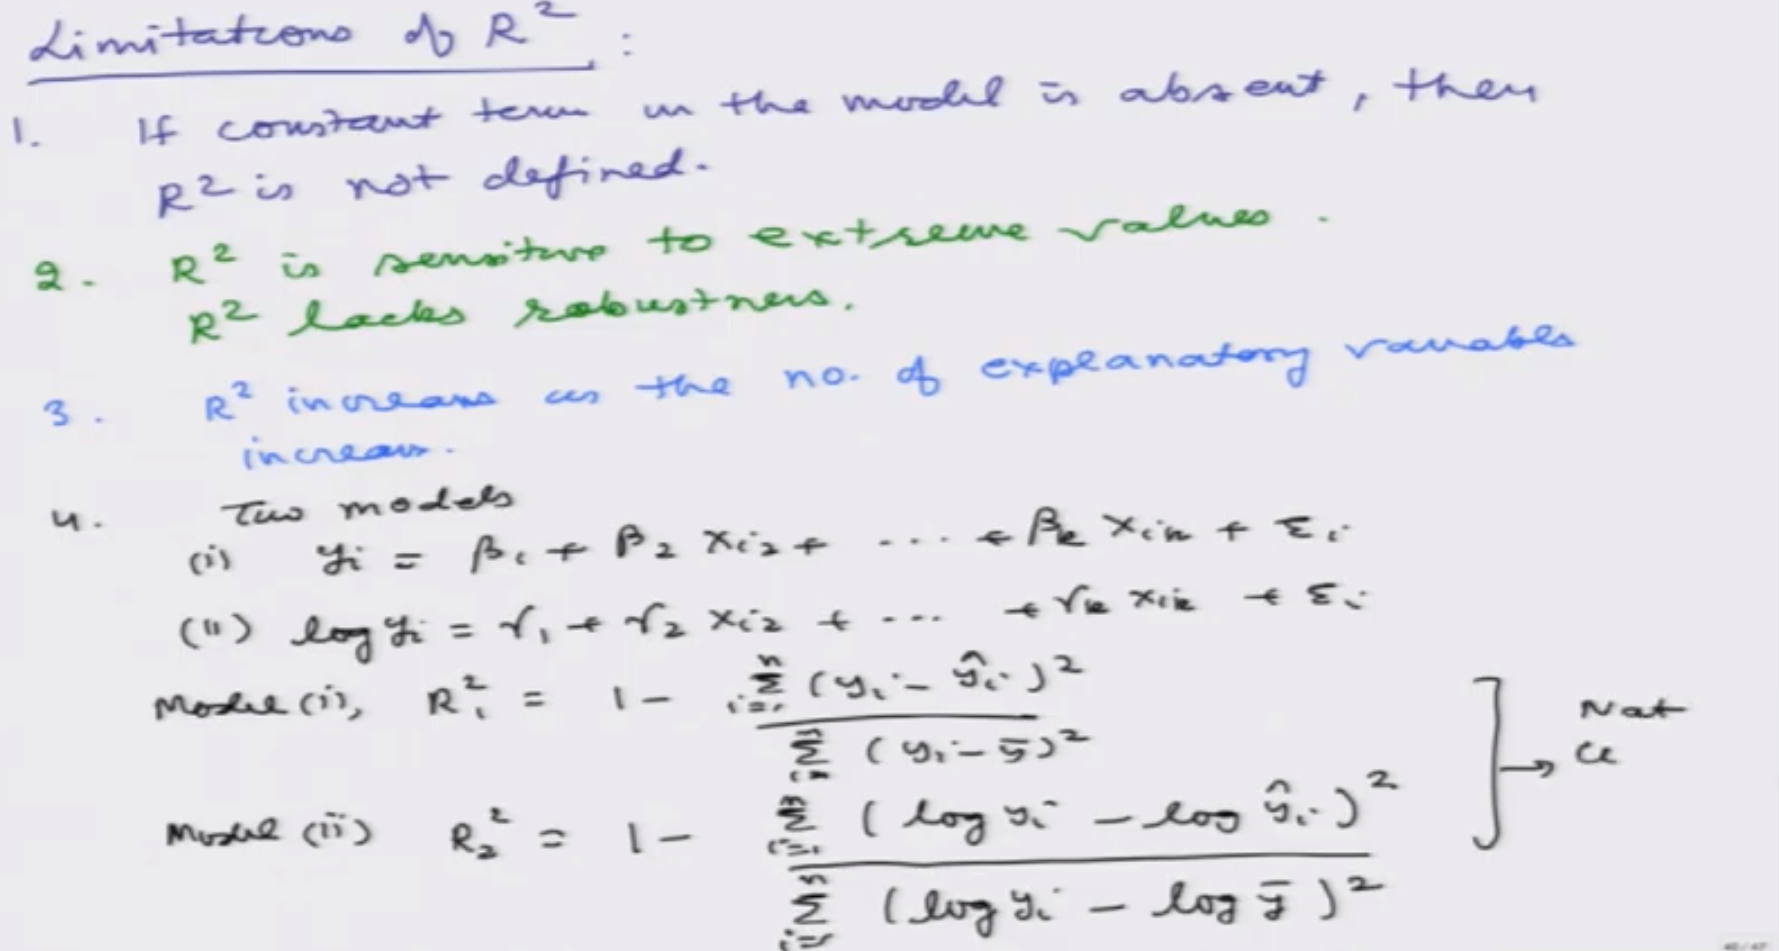 Limitations of R² :
1. If constant term in the model is absent, then
R² is not defined.
2. R² is sensitive to extreme values.
R² lacks robustness.
3. R² increases as the no. of explanatory variables
increases.
4. Two models
(i) yᵢ = β₁ + β₂ xᵢ₂ + ... + βₖ xᵢₖ + εᵢ
(ii) log yᵢ = γ₁ + γ₂ xᵢ₂ + ... + γₖ xᵢₖ + εᵢ
Model (i), R₁² = 1 - Σᵢ₌₁ⁿ (yᵢ - ŷᵢ)² / Σᵢ₌₁ⁿ (yᵢ - ȳ)²
Model (ii) R₂² = 1 - Σᵢ₌₁ⁿ (log yᵢ - log ŷᵢ)² / Σᵢ₌₁ⁿ (log yᵢ - log ȳ)²
] → Not